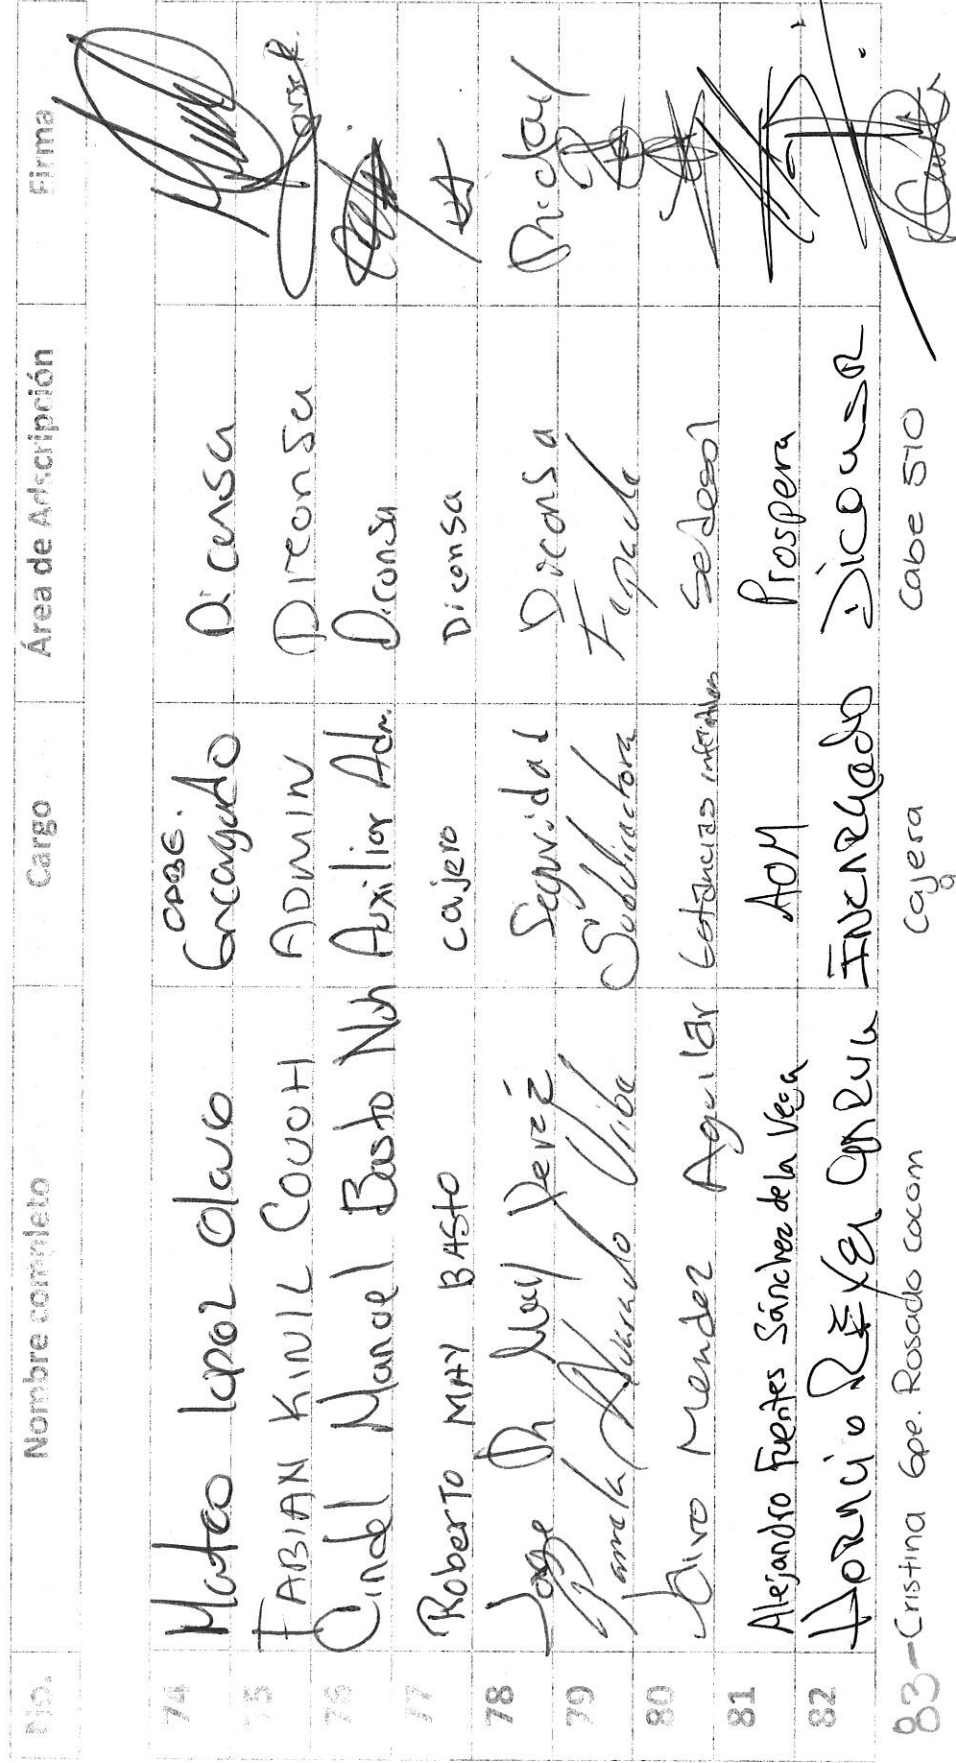 No. Nombre completo Cargo Área de Adscripción Firma
74 Mateo Lopez Olavo CABE. Encargado Diconsa
75 FABIAN KINIL COUOH ADMIN Diconsa
76 Cindel Manuel Basto Noh Auxiliar Adm. Diconsa
77 Roberto MAY BASTO cajero Diconsa
78 Jorge Ph May Perez Seguridad Diconsa
79 Pamela Alvarado Uribe Subdirectora Fapade
80 Jairo Mendez Aguilar Estancias infantiles Sedesol
81 Alejandro Fuentes Sánchez de la Vega AOM Prospera
82 REYES Encargado Diconsa
83-Cristina Gpe. Rosado Cocom Cajera Cabe 510